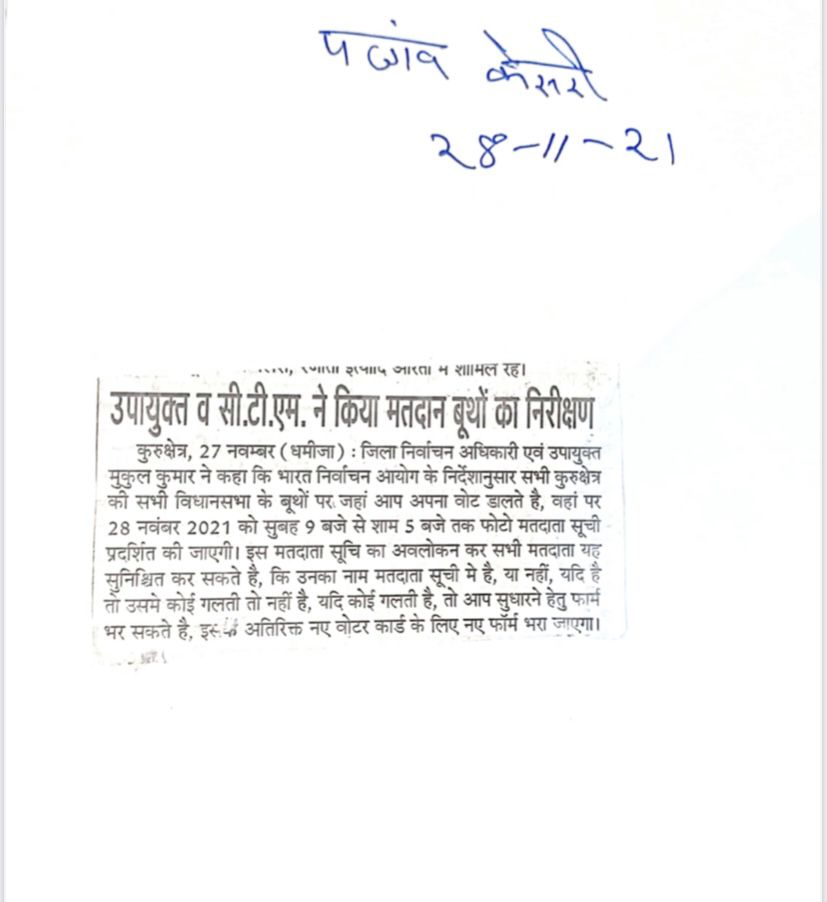 पंजाब केसरी
28-11-21
इत्यादि आरती में शामिल रहे।
उपायुक्त व सी.टी.एम. ने किया मतदान बूथों का निरीक्षण
कुरुक्षेत्र, 27 नवम्बर (धमीजा) : जिला निर्वाचन अधिकारी एवं उपायुक्त
मुकुल कुमार ने कहा कि भारत निर्वाचन आयोग के निर्देशानुसार सभी कुरुक्षेत्र
की सभी विधानसभा के बूथों पर जहां आप अपना वोट डालते है, वहां पर
28 नवंबर 2021 को सुबह 9 बजे से शाम 5 बजे तक फोटो मतदाता सूची
प्रदर्शित की जाएगी। इस मतदाता सूचि का अवलोकन कर सभी मतदाता यह
सुनिश्चित कर सकते है, कि उनका नाम मतदाता सूची मे है, या नहीं, यदि है
तो उसमे कोई गलती तो नहीं है, यदि कोई गलती है, तो आप सुधारने हेतु फार्म
भर सकते है, इसके अतिरिक्त नए वोटर कार्ड के लिए नए फॉर्म भरा जाएगा।